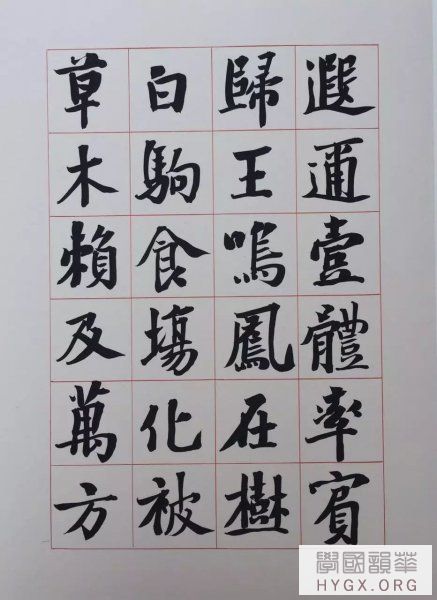 遐邇壹體率賓
歸王鳴鳳在樹
白駒食場化被
草木賴及萬方
華韻國學
HYGX.ORG